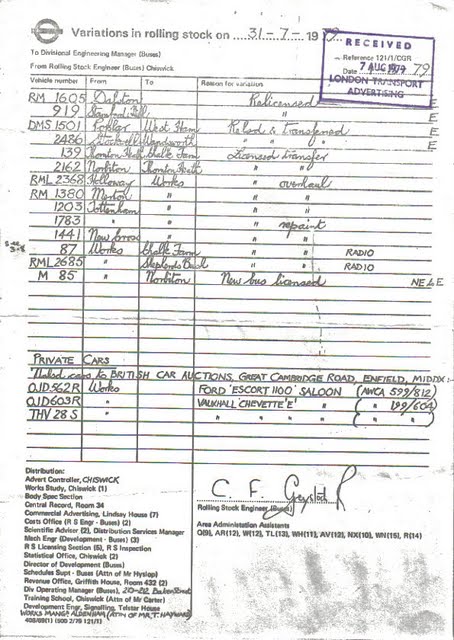 Variations in rolling stock on 31-7-1979
RECEIVED
Reference 121/1/CGR
7 AUG 1979
Date 79
LONDON TRANSPORT
ADVERTISING
To Divisional Engineering Manager (Buses)
From Rolling Stock Engineer (Buses) Chiswick
Vehicle number From To Reason for variation
RM 1605 Dalston Relicensed E
919 Stamford Hill " E
DMS 1501 Poplar West Ham Relsd & Transferred E
2486 Stockwell Wandsworth " " " E
139 Thornton Heath Chalk Farm Licensed Transfer
2162 Norbiton Thornton Heath " "
RML 2368 Holloway Works " overhaul
RM 1380 Merton " " "
1203 Tottenham " " "
1783 " " repaint
1441 New Cross " " "
87 Works Chalk Farm " " RADIO
RML 2685 " Shepherds Bush " " RADIO
M 85 " Norbiton New bus licensed NE & E
PRIVATE CARS
Naled cars to BRITISH CAR AUCTIONS, GREAT CAMBRIDGE ROAD, ENFIELD, MIDDX:-
OJD 562R Works FORD 'ESCORT 1100' SALOON (AWCA 599/812)
OJD 603R " VAUXHALL 'CHEVETTE 'E' " ( " 199/604)
THV 28 S " " " " " ( " " )
Distribution:
Advert Controller, CHISWICK
Works Study, Chiswick (1)
Body Spec Section
Central Record, Room 34
Commercial Advertising, Lindsay House (7)
Costs Office (R S Engr - Buses) (2)
Scientific Adviser (2), Distribution Services Manager
Mech Engr (Development - Buses) (3)
R S Licensing Section (5), R S Inspection
Statistical Office, Chiswick (2)
Director of Development (Buses)
Schedules Supt - Buses (Attn of Mr Hyslop)
Revenue Office, Griffith House, Room 432 (2)
Div Operating Manager (Buses), 20-212 Baker Street
Training School, Chiswick (Attn of Mr Carter)
Development Engr, Signalling, Telstar House
WORKS MANGR ALDENHAM (ATTN OF MR. T. HAYWARD)
408/89(1) (500 2/79 121/1)
C. F.
Rolling Stock Engineer (Buses)
Area Administation Assistants
O(9), AR(12), W(12), TL(13), WH(11), AV(12), NX(10), WN(15), R(14)